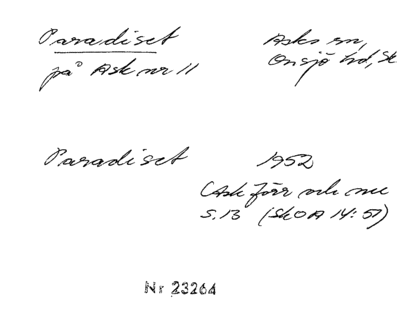 Paradiset
på Ask nr 11
Asks sn,
Onsjö hd, Sk
Paradiset
1952
(Ask förr och nu
S. 13 (SkOA 14:57)
Nr 23264